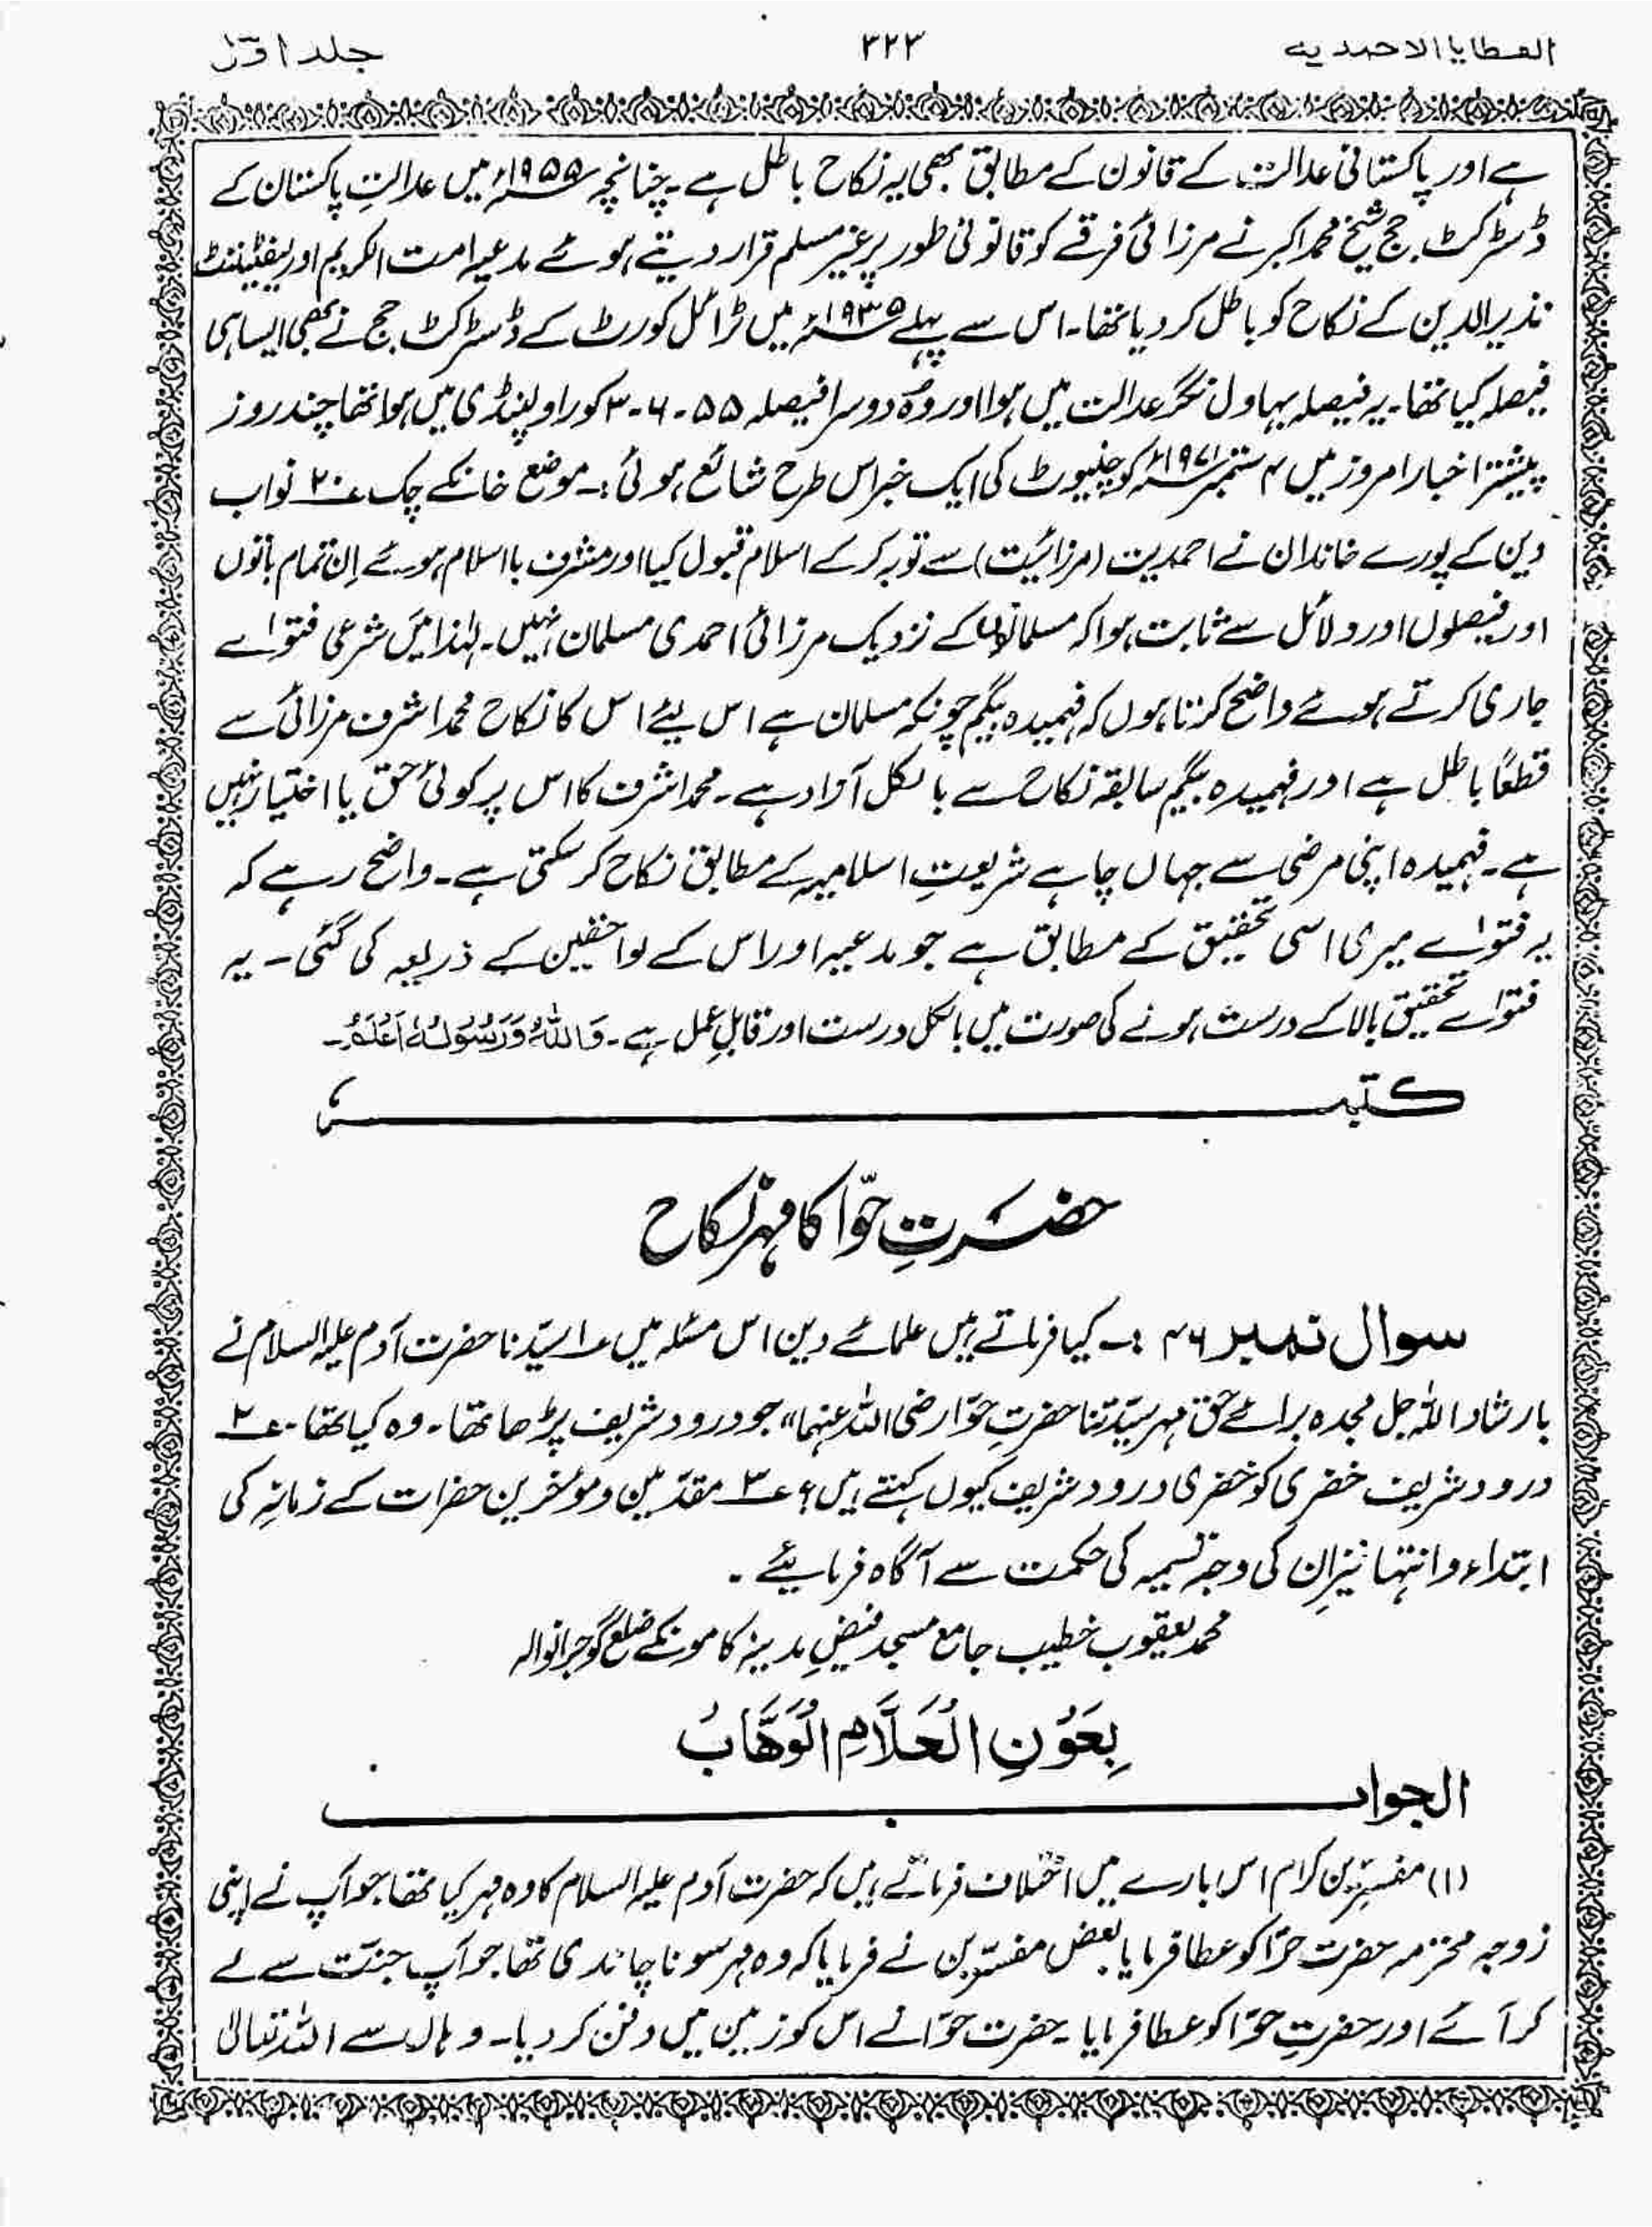 العطایا الاحمدیہ ۳۲۳ جلد اوّل
ہے اور پاکستانی عدالت کے قانون کے مطابق بھی یہ نکاح باطل ہے۔ چنانچہ ۱۹۵۵ء میں عدالتِ پاکستان کے
ڈسٹرکٹ جج شیخ محمد اکبر نے مرزائی فرقے کو قانونی طور پر غیر مسلم قرار دیتے ہوئے مدعیہ امت الکریم اور لیفٹیننٹ
نذیر الدین کے نکاح کو باطل کر دیا تھا۔ اس سے پہلے ۱۹۳۵ء میں ٹرائل کورٹ کے ڈسٹرکٹ جج نے بھی ایسا ہی
فیصلہ کیا تھا۔ یہ فیصلہ بہاول نگر عدالت میں ہوا اور وہ دوسرا فیصلہ ۵۵-۶-۳ کو راولپنڈی میں ہوا تھا چند روز
پیشتر اخبار امروز میں ۴ ستمبر ۱۹۷۱ء کو چنیوٹ کی ایک خبر اس طرح شائع ہوئی:۔ موضع خانکے چک ۲۰ نواب
دین کے پورے خاندان نے احمدیت (مرزائیت) سے توبہ کر کے اسلام قبول کیا اور مشرف بااسلام ہوئے اِن تمام باتوں
اور فیصلوں اور دلائل سے ثابت ہوا کہ مسلمانوں کے نزدیک مرزائی احمدی مسلمان نہیں۔ لہٰذا میں شرعی فتوائے
جاری کرتے ہوئے واضح کرتا ہوں کہ فہمیدہ بیگم چونکہ مسلمان ہے اس لیئے اس کا نکاح محمد اشرف مرزائی سے
قطعًا باطل ہے اور فہمیدہ بیگم سابقہ نکاح سے بالکل آزاد ہے۔ محمد اشرف کا اس پر کوئی حق یا اختیار نہیں
ہے۔ فہمیدہ اپنی مرضی سے جہاں چاہے شریعتِ اسلامیہ کے مطابق نکاح کر سکتی ہے۔ واضح رہے کہ
یہ فتوائے میری اسی تحقیق کے مطابق ہے جو مدعیہ اور اس کے لواحقین کے ذریعہ کی گئی۔ یہ
فتوائے تحقیق بالا کے درست ہونے کی صورت میں بالکل درست اور قابلِ عمل ہے۔ وَاللّٰہُ وَرَسُوْلُہٗ اَعْلَمُ۔
کتبہ
حضرتِ حوّا کا مہرِ نکاح
سوال نمبر ۴۶ :۔ کیا فرماتے ہیں علمائے دین اس مسئلہ میں ۱ سیّدنا حضرت آدم علیہ السلام نے
بارشاد اللّٰہ جل مجدہ برائے حق مہر سیّدتنا حضرتِ حوّا رضی اللہ عنہما" جو درود شریف پڑھا تھا۔ وہ کیا تھا۔ ۲
درود شریف خضری کو خضری درود شریف کیوں کہتے ہیں؟ ۳ مقدّمین و موٴخرین حضرات کے زمانہ کی
ابتداء و انتہا نیز اِن کی وجہ تسمیہ کی حکمت سے آگاہ فرمایئے۔
محمد یعقوب خطیب جامع مسجد فیضِ مدینہ کامونکے ضلع گوجرانوالہ
بِعَوْنِ الْعَلَّامِ الْوَھَّابُ
الجواب
(۱) مفسّرین کرام اس بارے میں اختلاف فرماتے ہیں کہ حضرت آدم علیہ السلام کا وہ مہر کیا تھا جو آپ نے اپنی
زوجہ محترمہ حضرت حوّا کو عطا فرمایا بعض مفسّرین نے فرمایا کہ وہ مہر سونا چاندی تھا جو آپ جنّت سے لے
کر آئے اور حضرتِ حوّا کو عطا فرمایا۔ حضرت حوّا نے اس کو زمین میں دفن کر دیا۔ وہاں سے اللہ تعالیٰ